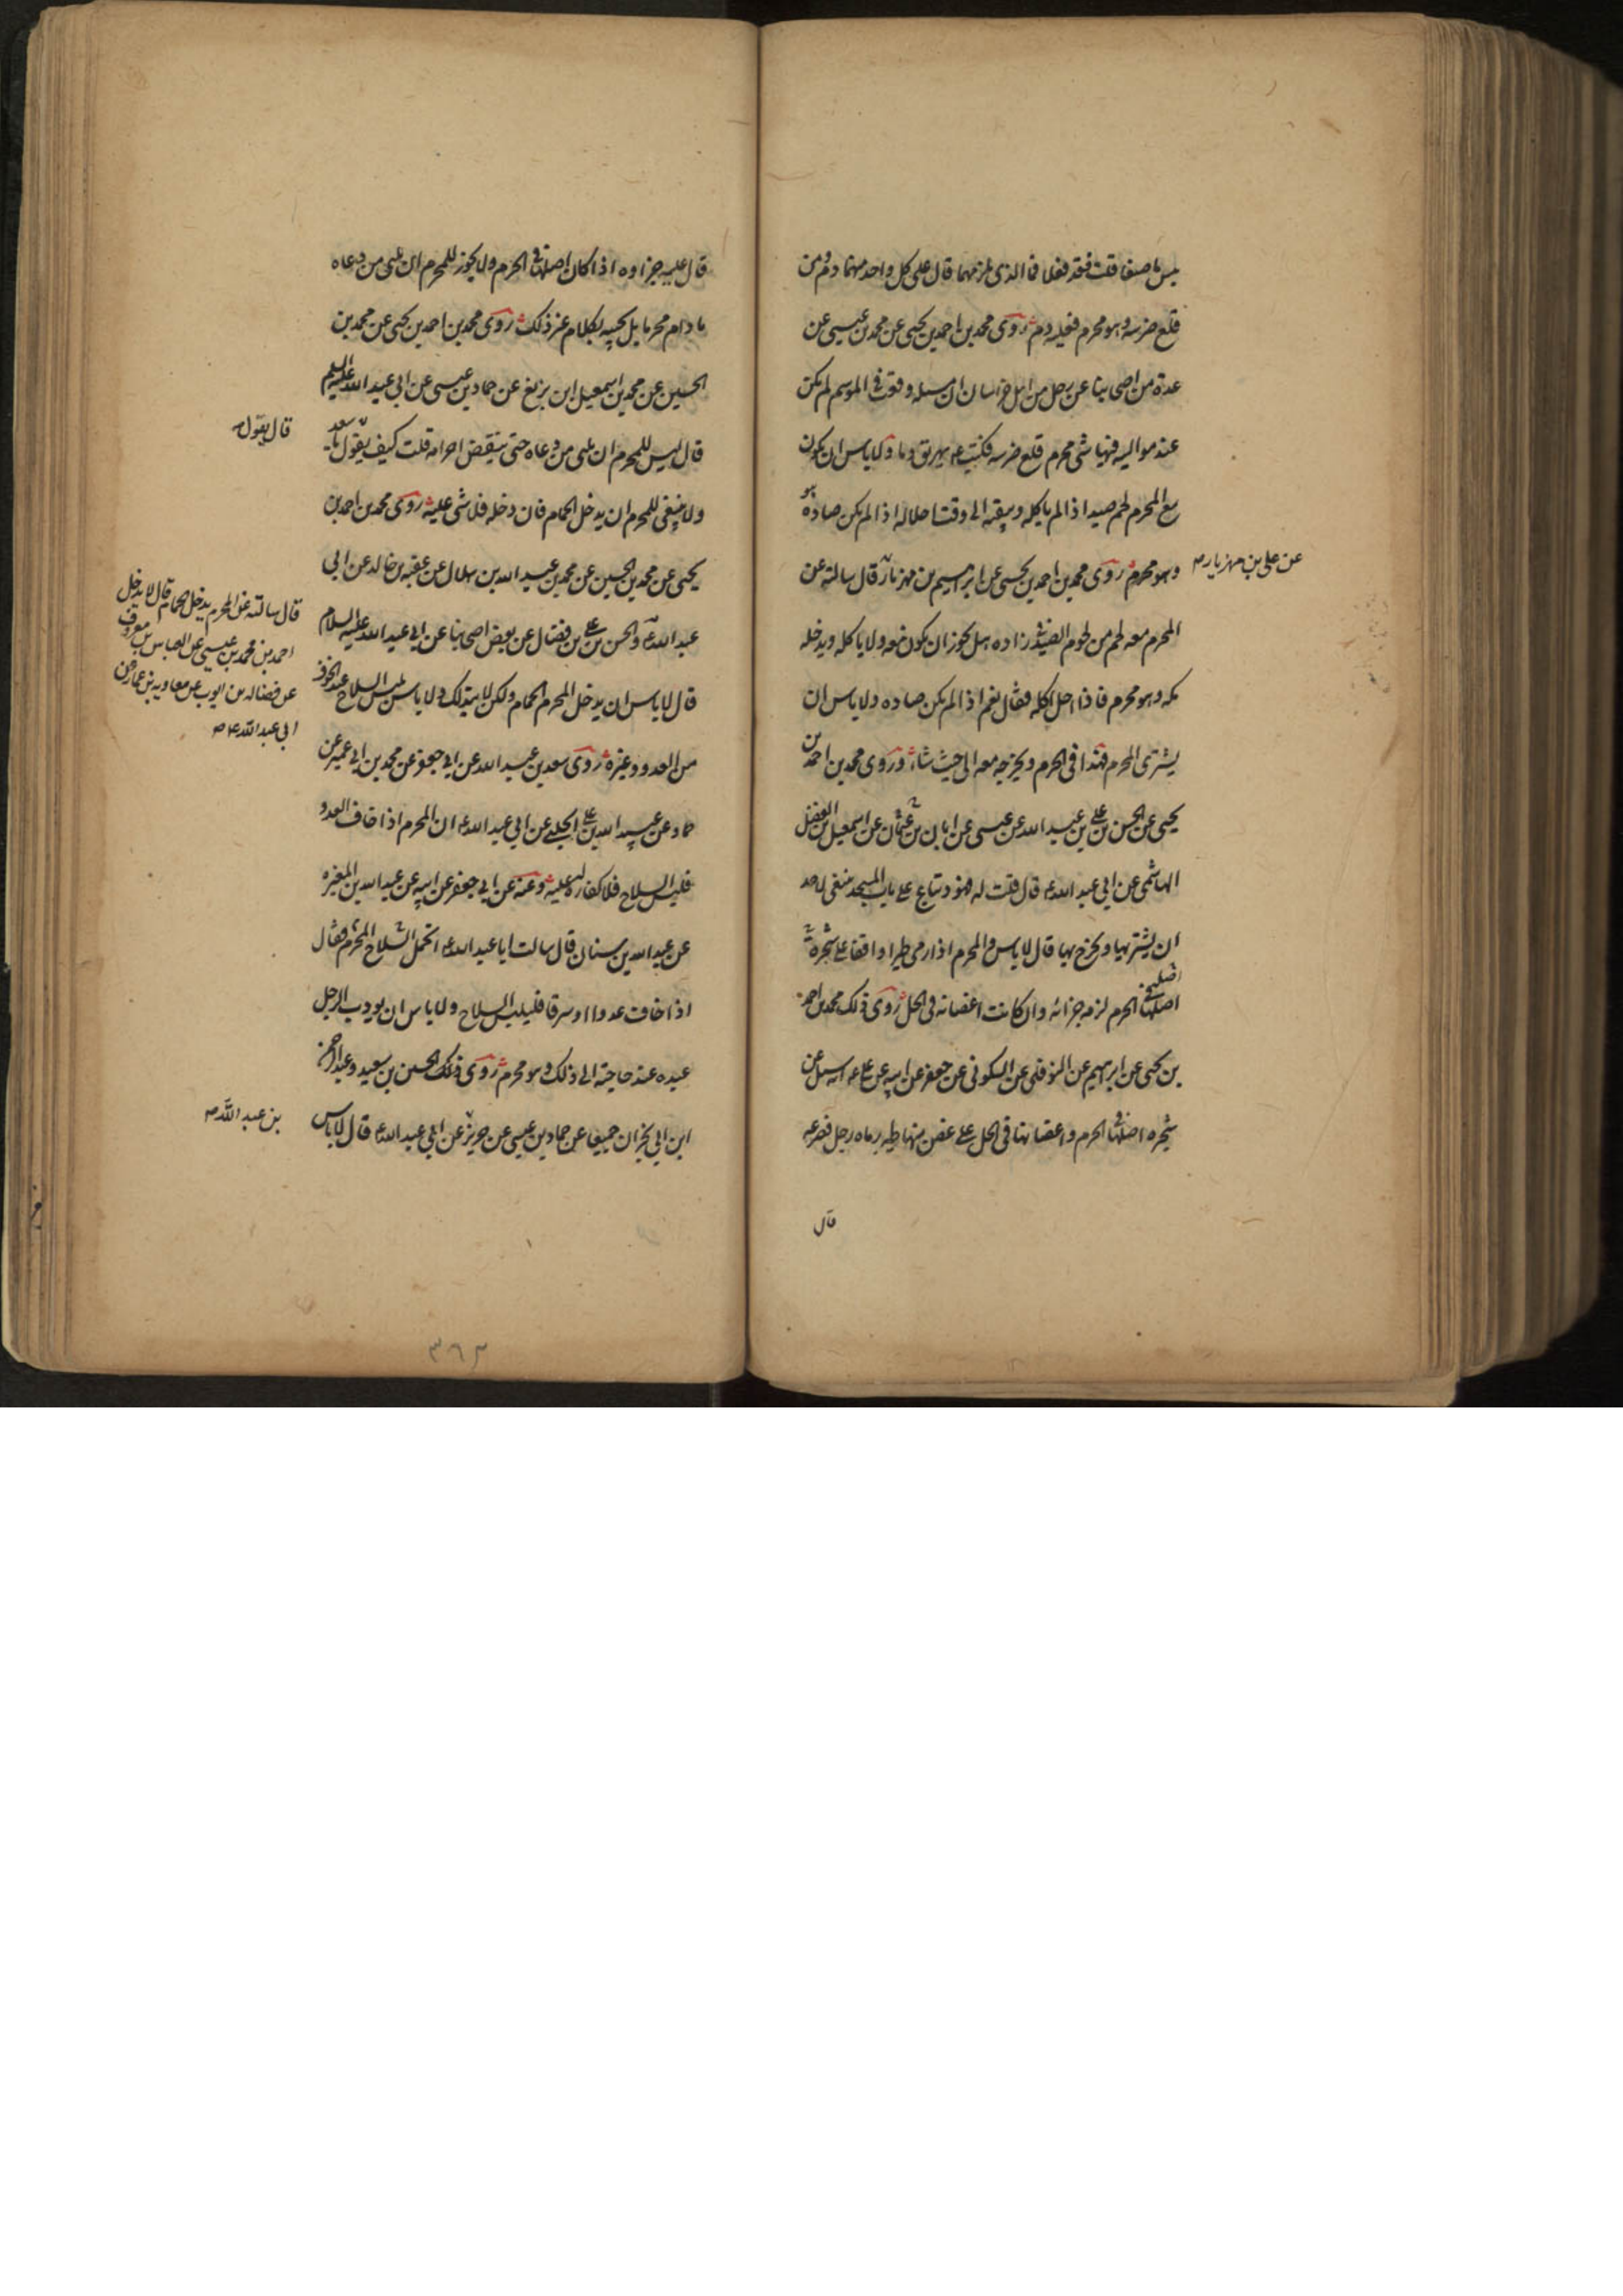 بئس ما صنعا قلت فقد فعلا فما الذي يلزمهما قال على كل واحد منهما دم ومن
قلع ضرسه وهو محرم فعليه دم روى محمد بن احمد بن يحيى عن محمد بن عيسى عن
عدة من اصحابنا عن رجل من اهل خراسان ان مسئلة وقعت في الموسم لم يكن
عند مواليه فيها شئ محرم قلع ضرسه فكتب ع يهريق دما ولا باس ان يكون
مع المحرم لحم صيد اذا لم ياكله ويبقيه الى وقت احلاله اذا لم يكن صاده هو
وهو محرم روى محمد بن احمد بن يحيى عن ابرهيم بن مهزيار قال سالته عن
عن علي بن مهزيار
المحرم معه لحم من لحوم الصيد في زاده هل يجوز ان يكون معه ولا ياكله ويدخله
مكه وهو محرم فاذا احل اكله فقال نعم اذا لم يكن صاده ولا باس ان
يشترى المحرم فهدا في الحرم ويخرجه معه الى حيث شاء وروى محمد بن احمد بن
يحيى عن الحسن بن علي بن عبد الله عن عيسى عن ابان بن عثمان عن اسمعيل بن الفضل
الهاشمي عن ابي عبد الله ع قال قلت له فهود تباع على باب المسجد ينبغي لاحد
ان يشتريها ويخرج بها قال لا باس والمحرم اذا رمى طيرا واقفا على شجرة
اصلها في الحرم لزمه جزائه وان كانت اغصانه في الحل روى ذلك محمد بن احمد
بن يحيى عن ابرهيم عن النوفلي عن السكوني عن جعفر عن ابيه عن علي ع انه سئل عن
شجره اصلها في الحرم واغصانها في الحل على غصن منها طير رماه رجل فصرعه
قال
قال عليه جزاوه اذا كان اصلها في الحرم ولا يجوز للمحرم ان يلبى من دعاه
ما دام محرما بل يجيبه بكلام غير ذلك روى محمد بن احمد بن يحيى عن محمد بن
الحسين عن محمد بن اسمعيل ابن بزيغ عن حماد بن عيسى عن ابي عبد الله عليه السلم
قال ليس للمحرم ان يلبى من دعاه حتى ينقض احرامه قلت كيف يقول يا سعد
قال يقول
ولا ينبغي للمحرم ان يدخل الحمام فان دخله فلا شئ عليه روى محمد بن احمد بن
يحيى عن محمد بن الحسين عن محمد بن عبد الله بن هلال عن عقبه بن خالد عن ابي
عبد الله ع والحسن بن علي بن فضال عن بعض اصحابنا عن ابي عبد الله عليه السلام
قال سالته عن المحرم يدخل الحمام قال لا يدخل
احمد بن محمد بن عيسى عن العباس بن معروف
عن فضاله بن ايوب عن معاويه بن عمار عن
ابي عبد الله ع
قال لا باس ان يدخل المحرم الحمام ولكن لا يتدلك ولا باس بلبس السلاح عند الخوف
من العدو وغيره روى سعد بن عبد الله عن ابي جعفر عن محمد بن ابي عمير عن
حماد عن عبيد الله بن علي الحلبي عن ابي عبد الله ع ان المحرم اذا خاف العدو
فلبس السلاح فلا كفاره عليه وعنه عن ابي جعفر عن ابيه عن عبد الله بن المغيره
عن عبد الله بن سنان قال سالت ابا عبد الله ع ايحمل السلاح المحرم فقال
اذا خاف عدوا او سرقا فليلبس السلاح ولا باس ان يودب الرجل
عبده عند حاجته الى ذلك وهو محرم روى ذلك الحسين بن سعيد وعبد الرحمن
ابن ابي نجران جميعا عن حماد بن عيسى عن حريز عن ابي عبد الله ع قال لا باس
بن عبد الله
٣٦٣